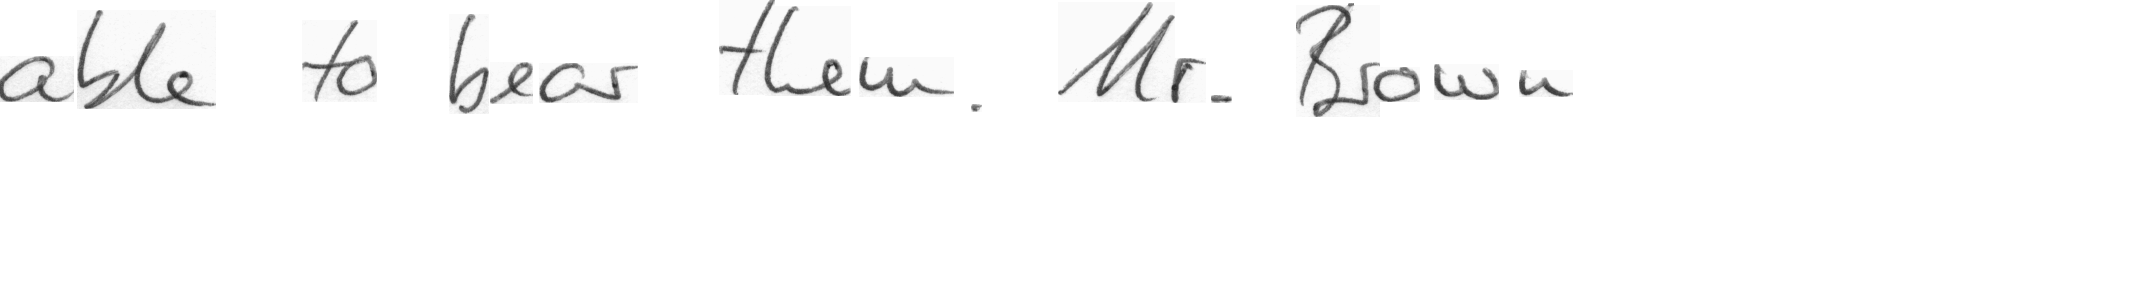 able to bear them. Mr. Brown